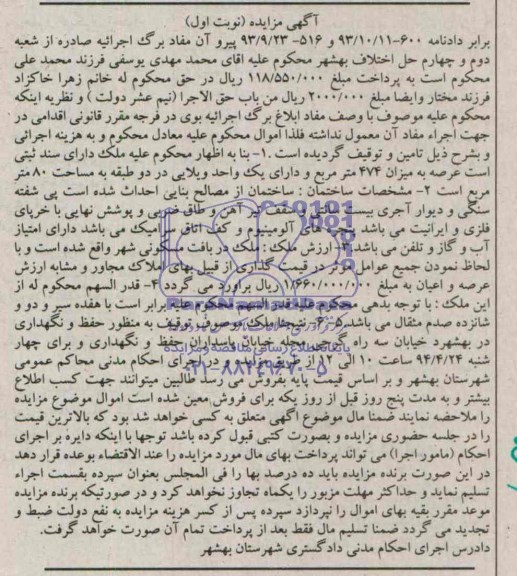 آگهی مزایده (نوبت اول)
برابر دادنامه ۶۰۰-۹۳/۱۰/۱۱ و ۵۱۶- ۹۳/۹/۲۳ پیرو آن مفاد برگ اجرائیه صادره از شعبه
دوم و چهارم حل اختلاف بهشهر محکوم علیه اقای محمد مهدی یوسفی فرزند محمد علی
محکوم است به پرداخت مبلغ ۱۱۸/۵۵۰/۰۰۰ ریال در حق محکوم له خانم زهرا خاکزاد
فرزند مختار وایضا مبلغ ۲۰۰۰/۰۰۰ ریال من باب حق الاجرا (نیم عشر دولت ) و نظریه اینکه
محکوم علیه موصوف با وصف مفاد ابلاغ برگ اجرائیه بوی در فرجه مقرر قانونی اقدامی در
جهت اجراء مفاد آن معمول نداشته فلذا اموال محکوم علیه معادل محکوم و به هزینه اجرائی
و بشرح ذیل تامین و توقیف گردیده است .۱- بنا به اظهار محکوم علیه ملک دارای سند ثبتی
است عرصه به میزان ۴۷۴ متر مربع و دارای یک واحد ویلایی در دو طبقه به مساحت ۸۰ متر
مربع است ۲- مشخصات ساختمان : ساختمان از مصالح بنایی احداث شده است پی شفته
سنگی و دیوار آجری بیست سانتی و سقف تیر آهن و طاق ضربی و پوشش نهایی با خرپای
فلزی و ایرانیت می باشد پنجره های آلومینیوم و کف اتاق سرامیک می باشد دارای امتیاز
آب و گاز و تلفن می باشد ۳- ارزش ملک : ملک در بافت مسکونی شهر واقع شده است و با
لحاظ نمودن جمیع عوامل موثر در قیمت گذاری از قبیل بهای املاک مجاور و مشابه ارزش
عرصه و اعیان به مبلغ ۱/۶۶۰/۰۰۰/۰۰۰ ریال براورد می گردد ۴- قدر السهم محکوم له از
این ملک : با توجه بدهی محکوم علیه قدر السهم محکوم علیه برابر است با هفده سیر و دو و
شانزده صدم مثقال می باشد. ۵-۶- نتیجا ملک موصوف توقیف به منظور حفظ و نگهداری
در بهشهر خیابان سه راه گرجی محله خیابان پاسداران حفظ و نگهداری و برای چهار
شنبه ۹۴/۴/۲۴ ساعت ۱۰ الی ۱۲ از طریق مزایده در اجرای احکام مدنی محاکم عمومی
شهرستان بهشهر و بر اساس قیمت پایه بفروش می رسد طالبین میتوانند جهت کسب اطلاع
بیشتر و به مدت پنج روز قبل از روز یکه برای فروش معین شده است اموال موضوع مزایده
را ملاحضه نمایند ضمنا مال موضوع اگهی متعلق به کسی خواهد شد بود که بالاترین قیمت
را در جلسه حضوری مزایده و بصورت کتبی قبول کرده باشد توجها با اینکه دایره بر اجرای
احکام (مامور اجرا) می تواند پرداخت بهای مال مورد مزایده را عند الاقتضاء بوعده قرار دهد
در این صورت برنده مزایده باید ده درصد بها را فی المجلس بعنوان سپرده بقسمت اجراء
تسلیم نماید و حداکثر مهلت مزبور را یکماه تجاوز نخواهد کرد و در صورتیکه برنده مزایده
موعد مقرر بقیه بهای اموال را نپردازد سپرده پس از کسر هزینه مزایده به نفع دولت ضبط و
تجدید می گردد ضمنا تسلیم مال فقط بعد از پرداخت تمام آن صورت خواهد گرفت.
دادرس اجرای احکام مدنی دادگستری شهرستان بهشهر
پایگاه اطلاع رسانی مناقصه و مزایده
۰۲۱-۸۸۳۴۹۶۷۰-۵